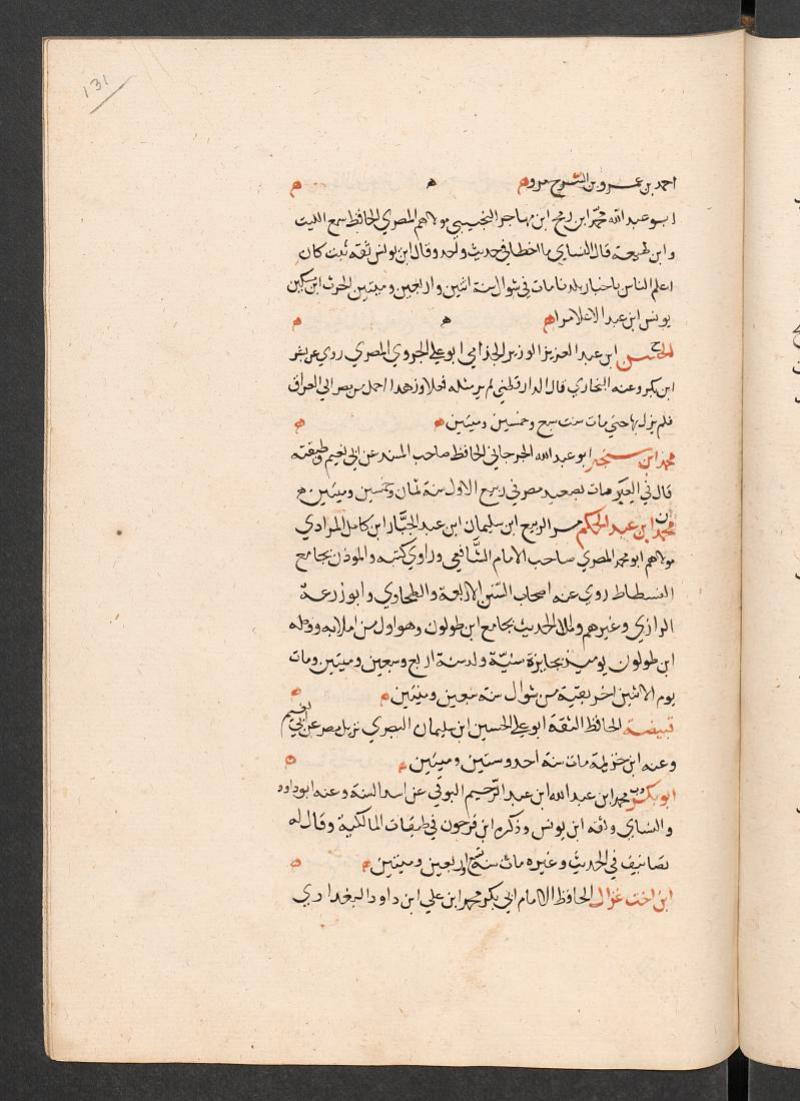 131
احمد بن عمرو بن السرح مروه
ابو عبد الله محمد ابن رمح ابن مهاجر التجيبي مولاهم المصري الحافظ سمع الليت
وابن لهيعة قال النساي ما اخطا في حديث واحد وقال ابن يونس ثقه ثبت كان
اعلم الناس باخبار بلدنا مات في شوال سنة اثنين واربعين وميتين الحرث ابن مسكين
يونس ابن عبد الاعلا مرا
الحسن ابن عبد العزيز الوزير الجذامي ابو علي الجروي المصري روي عن بشر
ابن بكر وعنه البخاري قال الدار قطني لم ير مثله فضلا وزهدا احمل من مصر الي العراق
فلم يزل بها حتي مات سنت سبع وخمسين وميتين
محمد ابن سنجر ابو عبد الله الجرجاني الحافظ صاحب المسند عن ابي نعيم وطبقته
قال في العبر مات بصعيد مصر في ربيع الاول سنة ثمان وخمسين وميتين
محمد ابن عبد الحكم مر الربيع ابن سليمان ابن عبد الجبار ابن كامل المرادي
مولاهم ابو محمد المصري صاحب الامام الشافعي وراوي كتبه والموذن بجامع
الفسطاط روي عنه اصحاب السنن الاربعة والطحاوي وابو زرعة
الرازي وغيرهم واملا الحديث بجامع ابن طولون وهو اول من املا به ووصله
ابن طولون يوميذ بجايزة سنيّة ولد سنة اربع وسبعين وميتين ومات
يوم الاثنين اخر بقية من شوال سنة سبعين وميتين
قبيضة الحافظ الثقة ابو علي الحسين ابن سليمان البصري نزيل مصر عن ابي نعيم
وعنه ابن خزيمة مات سنة احد وستين وميتين
ابو بكر محمد ابن عبد الله ابن عبد الرّحيم البوقي عن اسد السنة وعنه ابو داود
والنساي وثقه ابن يونس وذكره ابن فرحون في طبقات المالكية وقال له
تصانيف في الحديث وغيره مات سنة تسع اربعين وميتين
ابن اخت غزال الحافظ الامام ابي بكر محمد ابن علي ابن داود البغدادي